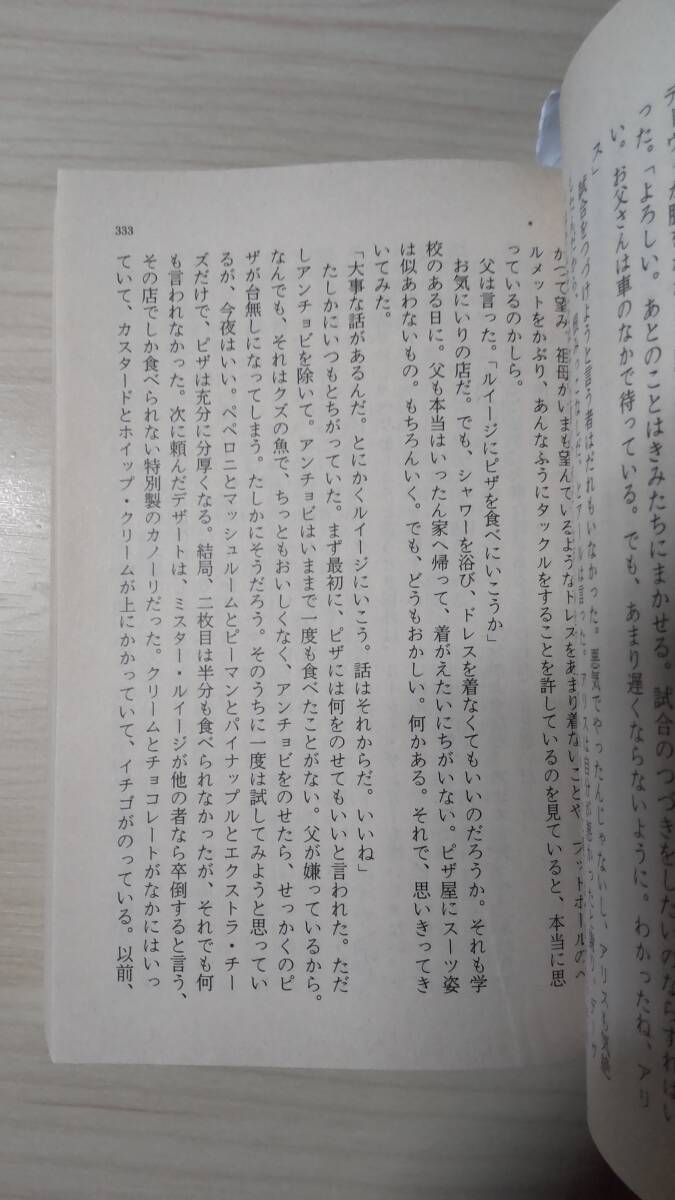 った。「よろしい。あとのことはきみたちにまかせる。試合のつづきをしたいのならすればい
い。お父さんは車のなかで待っている。でも、あまり遅くならないように。わかったね、アリ
ス」
試合をつづけようと言う者はだれもいなかった。悪気でやったんじゃないし、アリスも気絶
かつて望み、祖母がいまも望んでいるようなドレスをあまり着ないことや、フットボールのヘ
ルメットをかぶり、あんなふうにタックルをすることを許しているのを見ていると、本当に思
っているのかしら。
父は言った。「ルイージにピザを食べにいこうか」
お気にいりの店だ。でも、シャワーを浴び、ドレスを着なくてもいいのだろうか。それも学
校のある日に。父も本当はいったん家へ帰って、着がえたいにちがいない。ピザ屋にスーツ姿
は似あわないもの。もちろんいく。でも、どうもおかしい。何かある。それで、思いきってき
いてみた。
「大事な話があるんだ。とにかくルイージにいこう。話はそれからだ。いいね」
たしかにいつもとちがっていた。まず最初に、ピザには何をのせてもいいと言われた。ただ
しアンチョビを除いて。アンチョビはいままで一度も食べたことがない。父が嫌っているから。
なんでも、それはクズの魚で、ちっともおいしくなく、アンチョビをのせたら、せっかくのピ
ザが台無しになってしまう。たしかにそうだろう。そのうちに一度は試してみようと思ってい
るが、今夜はいい。ペペロニとマッシュルームとピーマンとパイナップルとエクストラ・チー
ズだけで、ピザは充分に分厚くなる。結局、二枚目は半分も食べられなかったが、それでも何
も言われなかった。次に頼んだデザートは、ミスター・ルイージが他の者なら卒倒すると言う、
その店でしか食べられない特別製のカノーリだった。クリームとチョコレートがなかにはいっ
ていて、カスタードとホイップ・クリームが上にかかっていて、イチゴがのっている。以前、
333